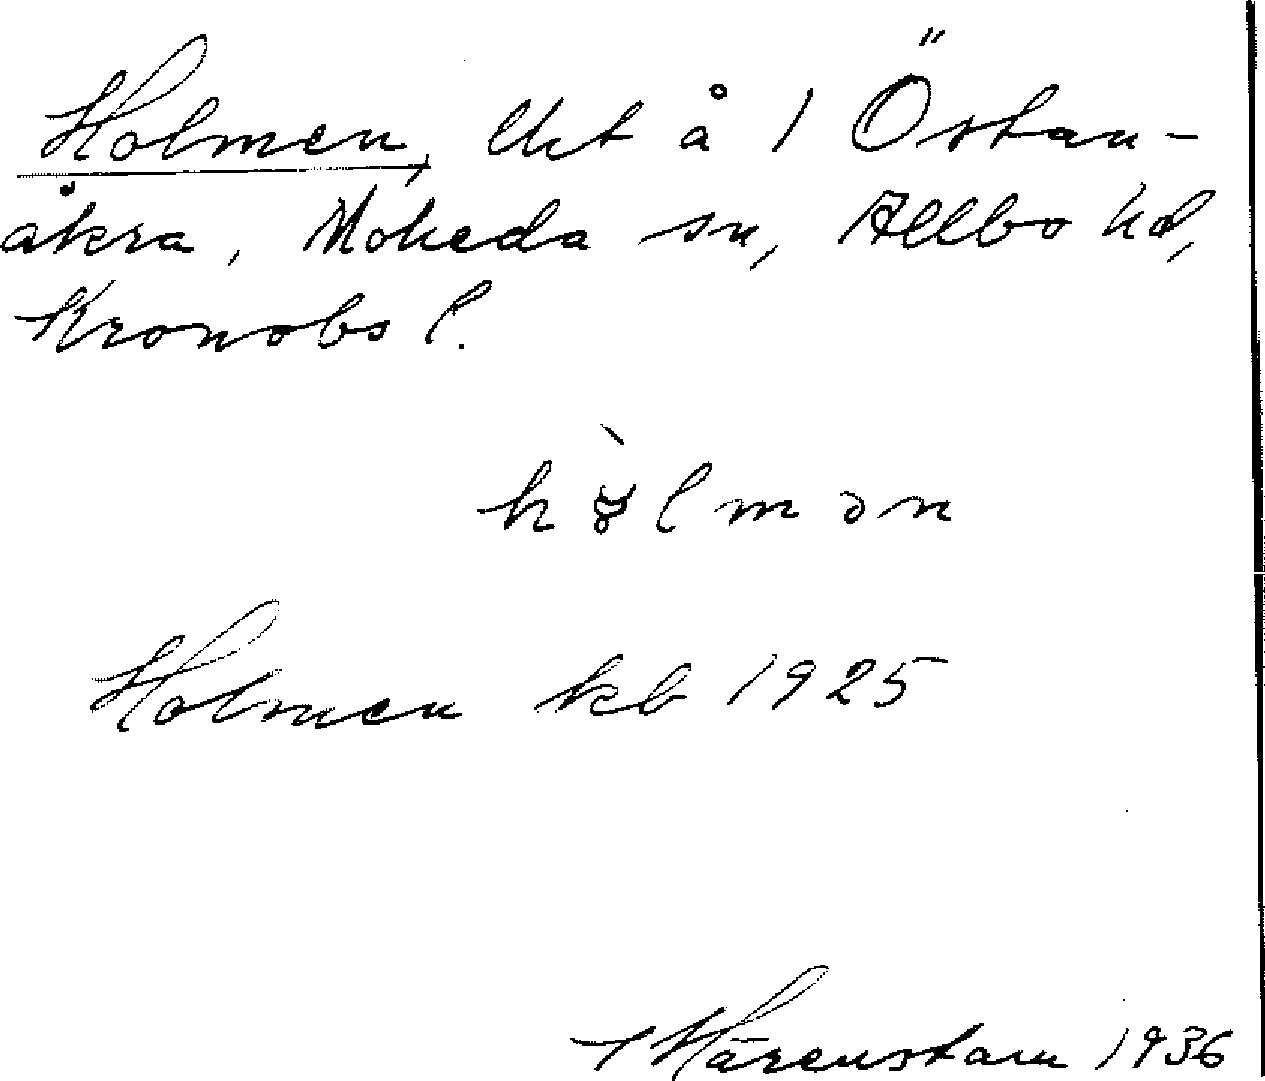 Holmen, lht å 1 Östan-
åkra, Moheda sn, Allbo hd,
Kronobs l.
Holmen kb 1925
Härenstam 1936